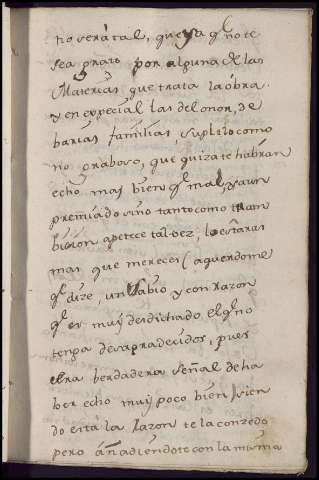 no será tal, que ya q̃ no te
sea grato por alguna de las
Materias que trata la óbra.
y en expecial las del onor, de
barias familias suplelo como
no graboso, que quiza te habrán
echo mas bien q̃ mal, y aun
premiado sino tanto como tu am
bision apetece tal vez, lo estaras
mas que mereces (aquerdome
q̃ dize, un Sabio y con razon
q̃ es muy desdichado el q̃ no
tenga desagradecidos, pues
era berdadera señal de ha
ber echo muy poco bien) sien
do esta la razon te la conzedo
pero áñadiendote con la misma